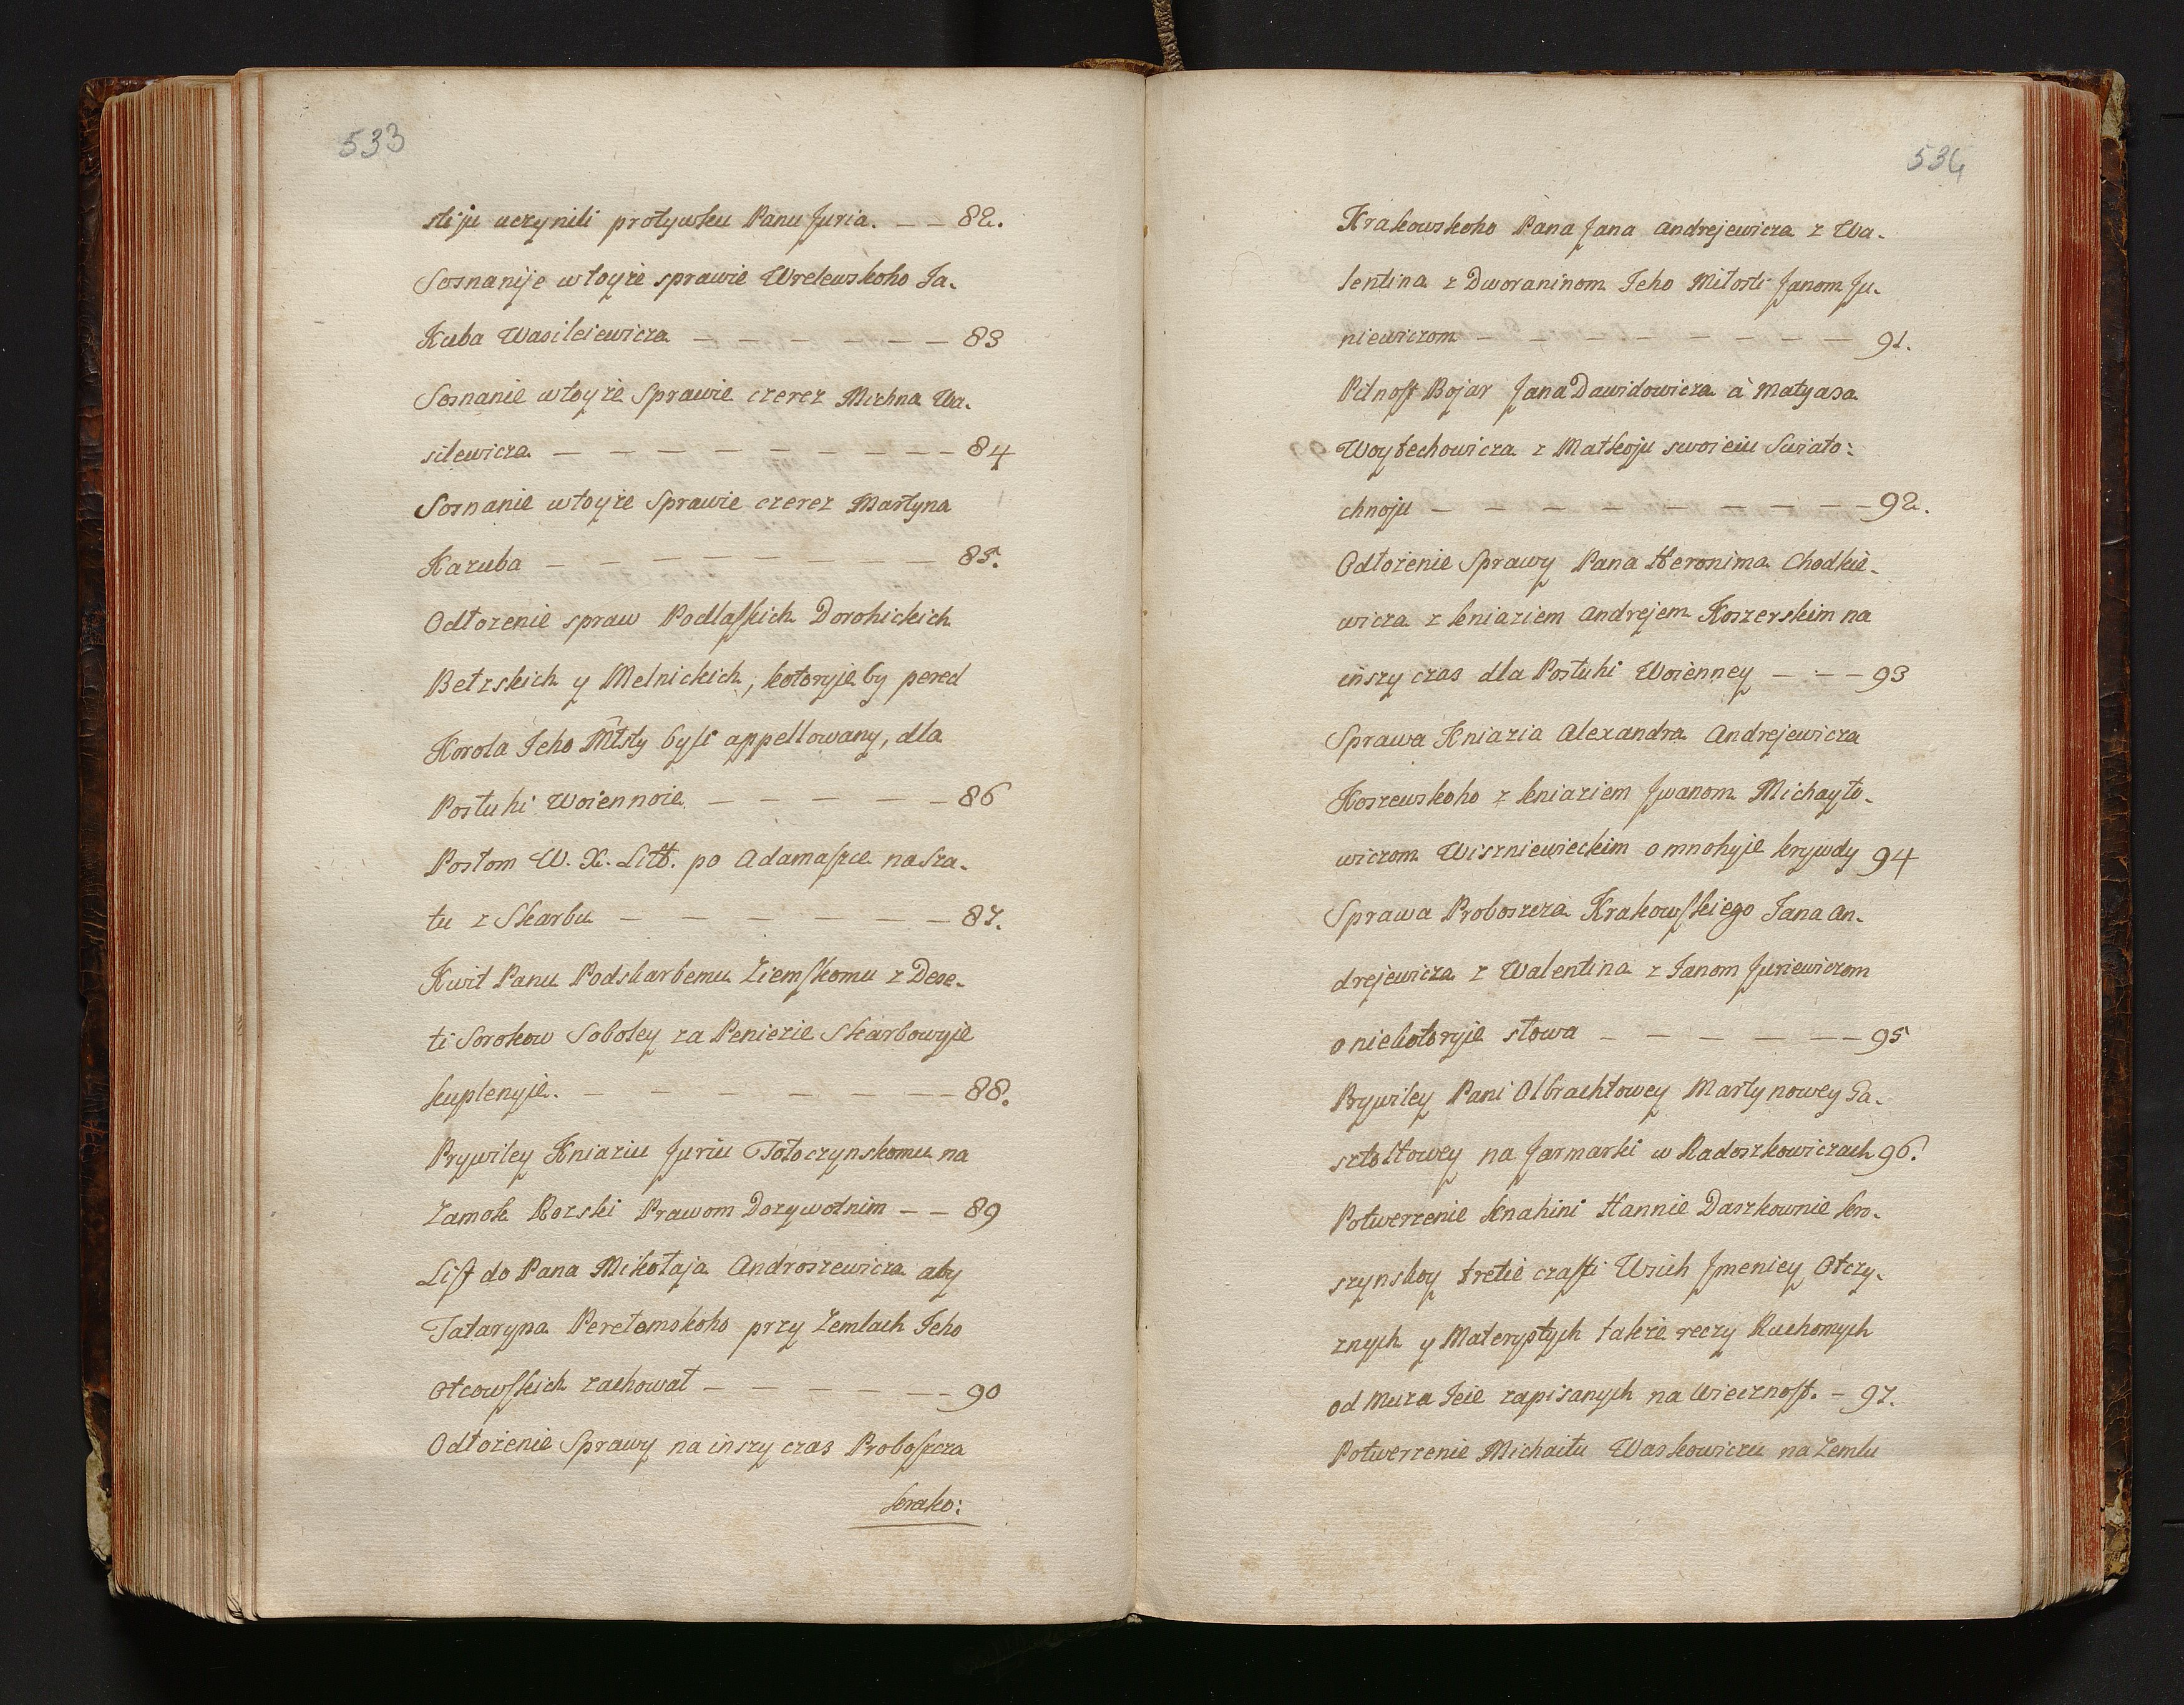 533
stiju uczynili protywku Panu Juria. — — 82.
Soznanije w toyże sprawie Wrelewskoho Ja-
Kuba Wasileiewicza — — — — — — 83
Soznanie w toyże Sprawie czerez Michna Wa-
silewicza — — — — — — — — — 84
Soznanie w toyże Sprawie czerez Martyna
Kazuba — — — — — — — 85.
Odłożenie spraw Podlaskich Dorohickich
Betzskich y Melnickich, kotoryje by pered
Korola Jeho Młsty byli appellowany, dla
Posłuhi Woiennoie — — — — — 86
Posłom W. X. Litt. po Adamaszce na Sza-
tu z Skarbu — — — — — — 87.
Kwit Panu Podskarbemu Ziemskomu z Dese-
ti Sorokow Soboley za Penieżie Skarbowyje
kuplenyje. — — — — — — — 88.
Prywiley Kniaziu Juriu Tołoczynskomu na
Zamok Rozski Prawom Dożywotnim — — 89
List do Pana Mikołaja Androszewicza aby
Tataryna Peretomskoho przy Zemlach Jeho
Otcowskich zachował — — — — — — 90
Odłożenie Sprawy na inszy czas Proboszcza
Krako:
534
Krakowskoho Pana Jana Andrejewicza z Wa-
lentina z Dworaninom Jeho Miłosti Janom Ju-
niewiczom — — — — — — — 91.
Pilnost Bojar Jana Dawidowicza à Matyasa
Woytechowicza z Matkoju swoieiu Swiato:
chnoju — — — — — — — — 92.
Odłożenie Sprawy Pana Heronima Chodkie-
wicza z kniaziem Andrejem Koszerskim na
inszy czas dla Posłuhi Woienney — — — 93
Sprawa Kniazia Alexandra Andrejewicza
Koszewskoho z kniaziem Jwanom Michayło-
wiczom Wiszniewieckim o mnohyje krywdy 94
Sprawa Proboszcza Krakowskiego Jana An-
drejewicza z Walentina z Janom Juriewiczom
o niekotoryje słowa — — — — — — 95
Prywiley Pani Olbrachtowey Martynowey Ga-
sztołtowey na Jarmarki w Radoszkowiczach 96.
Potwerzenie Knahini Hannie Daszkownie Kro-
szynskoy tretie czasti Wsich Jmeniey Otczy-
znych y Materystych także reczy Ruchomych
od Muża Jeie zapisanych na Wiecznost. — 97.
Potwerzenie Michaiłu Waskowiczu na Zemlu